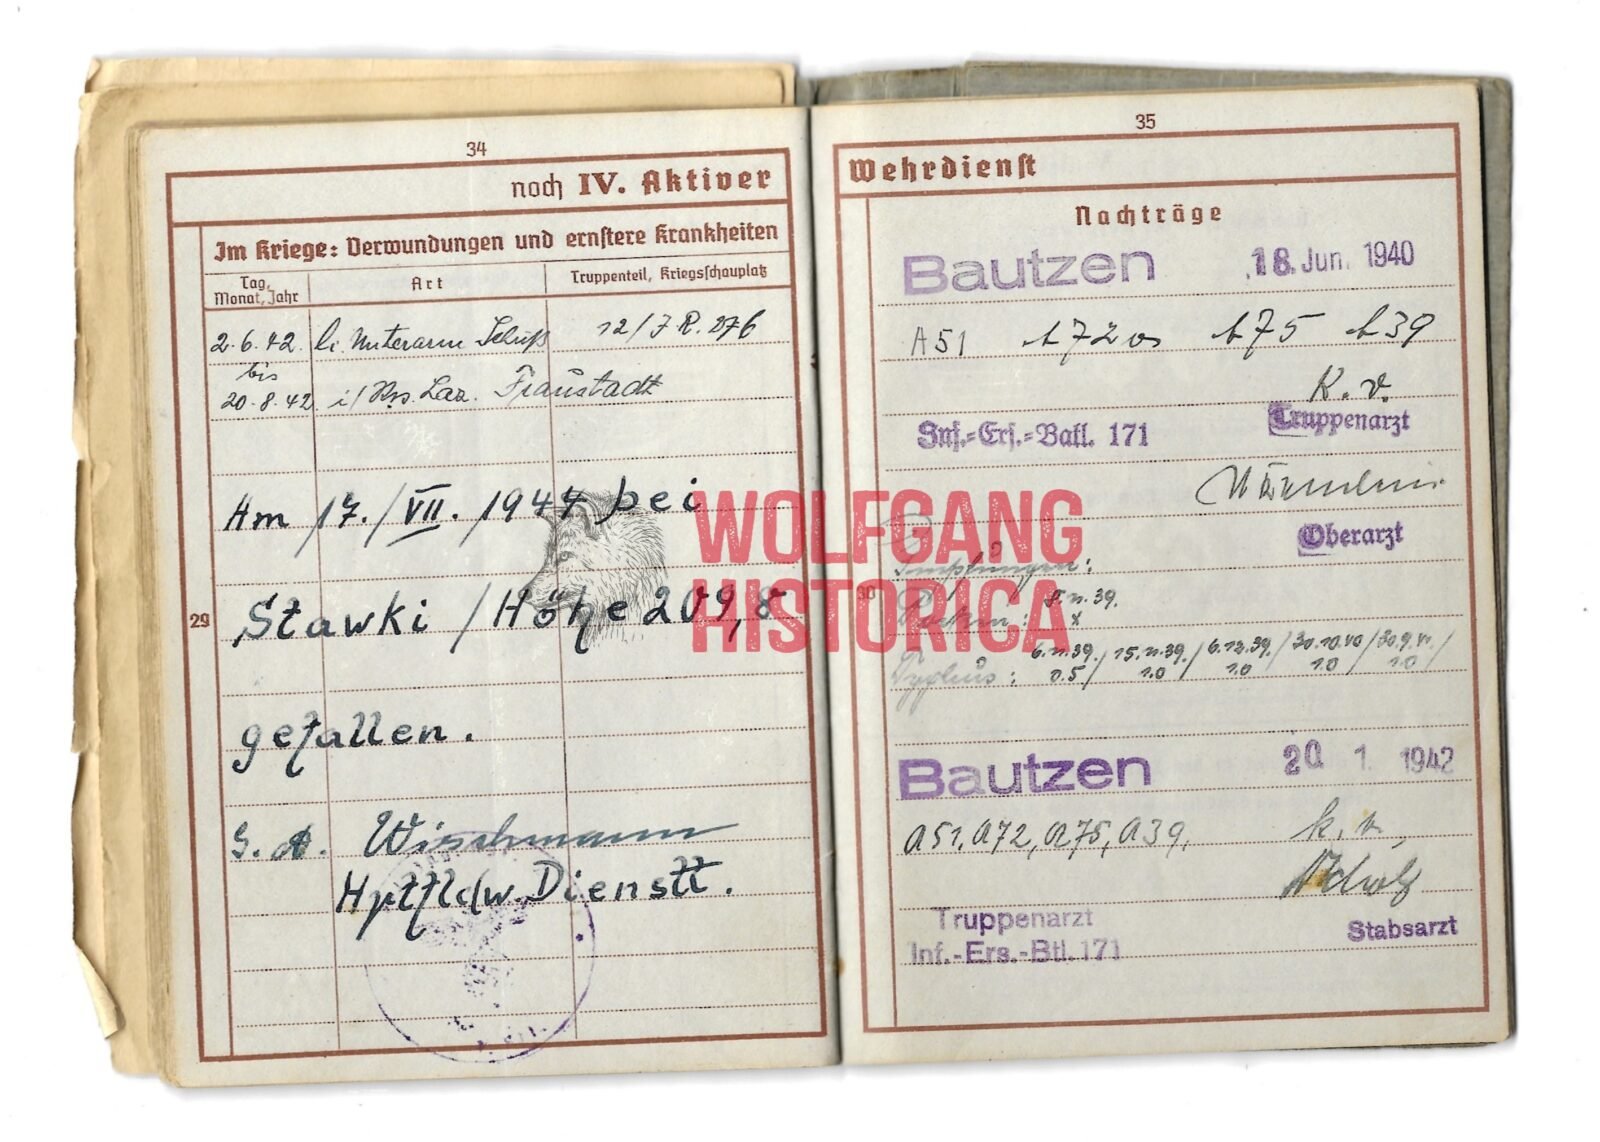 34
noch IV. Aktiver
Im Kriege: Verwundungen und ernstere Krankheiten
Tag, Monat, Jahr
Art
Truppenteil, Kriegsschauplatz
2.6.42. li. Unterarm Schuß 12/J.R. 276
bis
20.8.42. i/ Res. Laz. Fraustadt
Am 17./VII./1944 bei
29
Stawki / Höhe 209,8
gefallen.
Wischmann
Hptfldw. Dienstt.
WOLFGANG
HISTORICA
35
Wehrdienst
Nachträge
Bautzen 18. Jun. 1940
A51 A72 A75 A39
K.v.
Inf.=Ers.=Batl. 171 Truppenarzt
Oberarzt
30
Impfungen:
Pocken: 8.11.39.
x
Typhus: 6.11.39. / 15.11.39. / 6.12.39. / 30.10.40 / 30.9.41. /
0.5 1.0 1.0 1.0 1.0
Bautzen 20 1. 1942
A51, A72, A75, A39, k.v.
Truppenarzt
Inf.-Ers.-Btl. 171
Stabsarzt